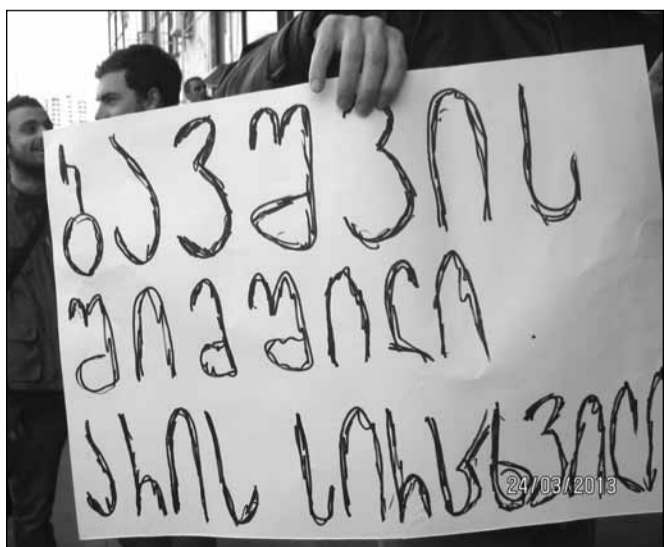 ბავშვის
შიმშილი
არის სირცხვილი
24/03/2013